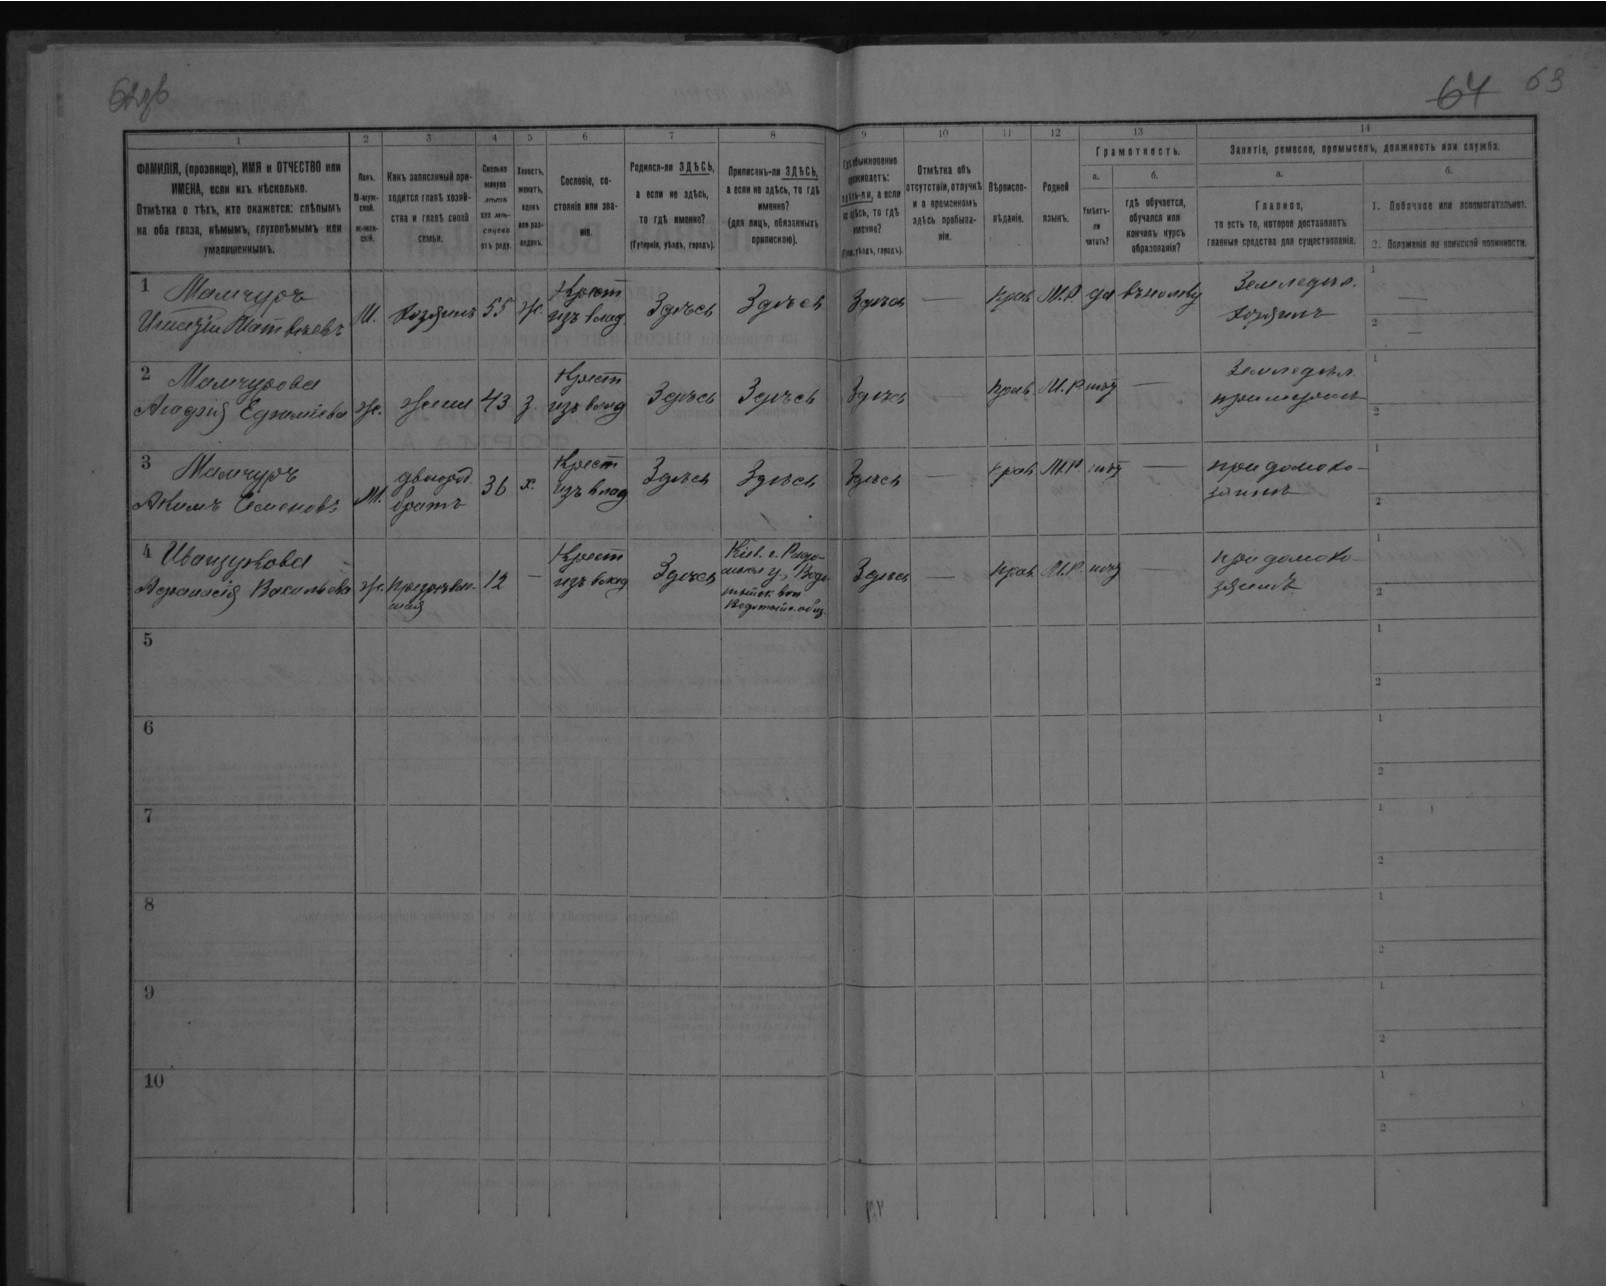 64 63
1 2 3 4 5 6 7 8 9 10 11 12 13 14
ФАМИЛІЯ, (прозвище), ИМЯ и ОТЧЕСТВО или
ИМЕНА, если ихъ нѣсколько.
Отмѣтка о тѣхъ, кто окажется: слѣпымъ
на оба глаза, нѣмымъ, глухонѣмымъ или
умалишеннымъ.
Полъ.
М-муж-
ской.
ж-жен-
скій.
Какъ записанный при-
ходится главѣ хозяй-
ства и главѣ своей
семьи.
Сколько
минуло
лѣтъ
или мѣ-
сяцевъ
отъ роду.
Холостъ,
женатъ,
вдовъ
или раз-
веденъ.
Сословіе, со-
стояніе или зва-
ніе.
Родился-ли ЗДѢСЬ,
а если не здѣсь,
то гдѣ именно?
(Губернія, уѣздъ, городъ).
Приписанъ-ли ЗДѢСЬ,
а если не здѣсь, то гдѣ
именно?
(для лицъ, обязанныхъ
припискою).
Гдѣ обыкновенно
проживаетъ:
здѣсь-ли, а если
не здѣсь, то гдѣ
именно?
(Губ., уѣздъ, городъ).
Отмѣтка объ
отсутствіи, отлучкѣ
и о временномъ
здѣсь пребыва-
ніи.
Вѣроиспо-
вѣданіе.
Родной
языкъ.
Грамотность.
а.
Умѣетъ-
ли
читать?
б.
гдѣ обучается,
обучался или
кончилъ курсъ
образованія?
Занятіе, ремесло, промыселъ, должность или служба.
а.
Главное,
то есть то, которое доставляетъ
главныя средства для существованія.
б.
1. Побочное или вспомогательное.
2. Положеніе по воинской повинности.
1 Мамчуръ Крест Земледѣл. 1
Матвѣевъ М. Хозяинъ 55 ж. изъ влад Здѣсь Здѣсь Здѣсь — Прав. М.Р. да — хозяинъ 2
2 Мамчурова Крест Земледѣл. 1
Ефимовa ж. жена 43 з. изъ влад Здѣсь Здѣсь Здѣсь Прав. М.Р. нѣтъ — при мужѣ 2
3 Мамчуръ двоюрод. Крест при домохо- 1
Акимъ Семеновъ М. братъ 36 х. изъ влад Здѣсь Здѣсь Здѣсь — Прав. М.Р. нѣтъ — зяинѣ 2
4 Иващукова Крест Кіев. г. Радо- при домохо- 1
Афанасія Васильева ж. 12 — изъ влад Здѣсь мысл. у., Водо- Здѣсь — Прав. М.Р. нѣтъ — зяинѣ 2
5 1
2
6 1
2
7 1
2
8 1
2
9 1
2
10 1
2